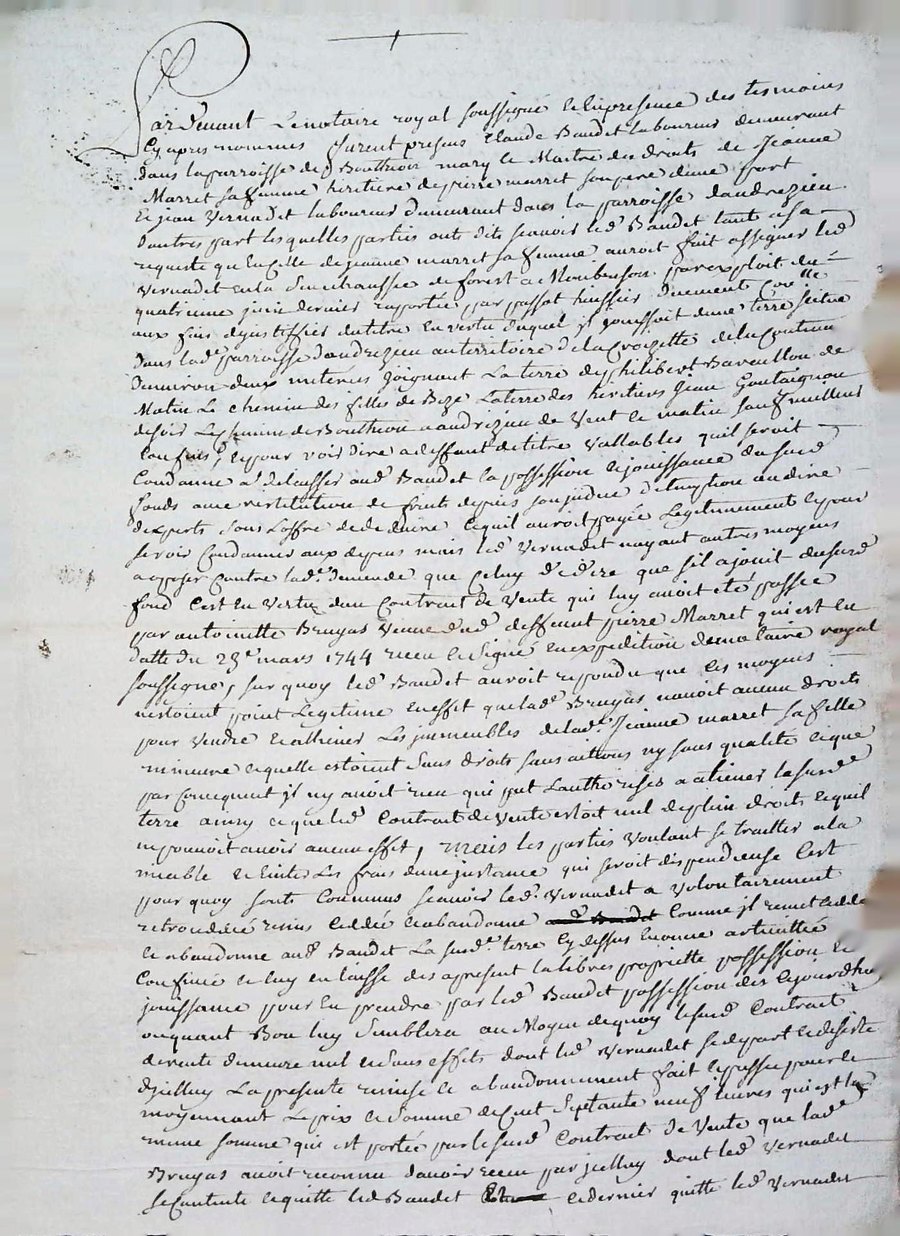 Pardevant Le notaire royal soussigné et en presence des tesmoins
Cy apres nommes furent presens Claude Baudet laboureur demeurant
dans la parroisse de Bouthéon mary et Maitre des droits de Jeanne
Marret sa femme heritiere de pierre marret son pere dune part
Et jean Vernadet laboureur demeurant dans la parroisse dandrezieu
dautres part les quelles parties onts dits scavoir led Baudet tant a sa
requeste qu'en celle de jeanne marret sa femme auroit fait assigner led
Vernadet en la Senechaussée de forest a Monbrison par exploit du
quatrieme juin dernier raportée par passot huissier duement Conlle
aux fins de justiffier du titre en vertu duquel jl jouissoit dune terre scitue
dans lade parroisse dandrezieu au territoire de la Croizette de la Contenu
denviron deux meterées joignant La terre de philibert Baveullon de
Matin Le chemin des filles de Boze La terre des heritiers jean Goutaignon
de soir Le chemin de Bouthéon a andrezieu de Vent et matin sauf meilleurs
Confins, et pour voir dire a deffaut de titre Vallables quil seroit
Condanné a delaisser aud Baudet la possession et jouissance du susd
fonds avec restitution de fruits depuis son jndue detemption au dire
dexperts sous Loffre de deduire Ce quil auroit payée Legitimement et pour
se voir Condanner aux depens mais led Vernadet nayant autres moyens
a oposer Contre lade demende que Celuy de dire que sil a jouit du susd
fond Cest En Vertu dun Contract de Vente qui luy avoit eté passée
par antoinette Bruyas Veuve dud deffunt pierre Marret qui est En
datte du 23e mars 1744 receu et Signé en expedition du notaire royal
soussigné, sur quoy led Baudet auroit repondu que les moyens
nestoient point Legitime En effet que lade Bruyas navoit aucun droits
pour vendre et alliener Les jmmeubles de lade Jeanne marret sa fille
mineure et quelle estoient Sans droits sans actions ny sans qualité et que
par Consequent jl ny avoit rien qui put Lauthoriser a aliener la susde
terre ainsy et que led Contract de Vente estoit nul de plein droits et quil
ne pouvoit avoir aucun effet, mais les parties Voulant se traitter a la
miable et Eviter Les frais dune jnstance qui seroit dispendieuse Cest
pour quoy sonts Convenus scavoir led Vernadet a Volontairement
retroceddé remis Ceddé et abandonné Comme jl remet Cedde
et abandonne aud Baudet La susde terre Cy dessus Enoncé articullée
Confinée et luy en laisse des a present la libres propriette possession et
jouissance pour En prendre par led Baudet possession des Cejourdhui
ou quant Bon luy Semblera au Moyen de quoy le susd Contract
de vente demeure nul et Sans effets dont led Vernadet se depart et desiste
djcelluy La presente remise et abandonnement fait et passé pour et
moyennant Le prix et Somme de Cent Septante neuf livres qui est la
meme somme qui est portée par le susd Contract de Vente que lade
Bruyas avoit reconnu davoir receu par jcelluy dont led Vernadet
se Contente et quitte led Baudet et dernier quitte led Vernadet